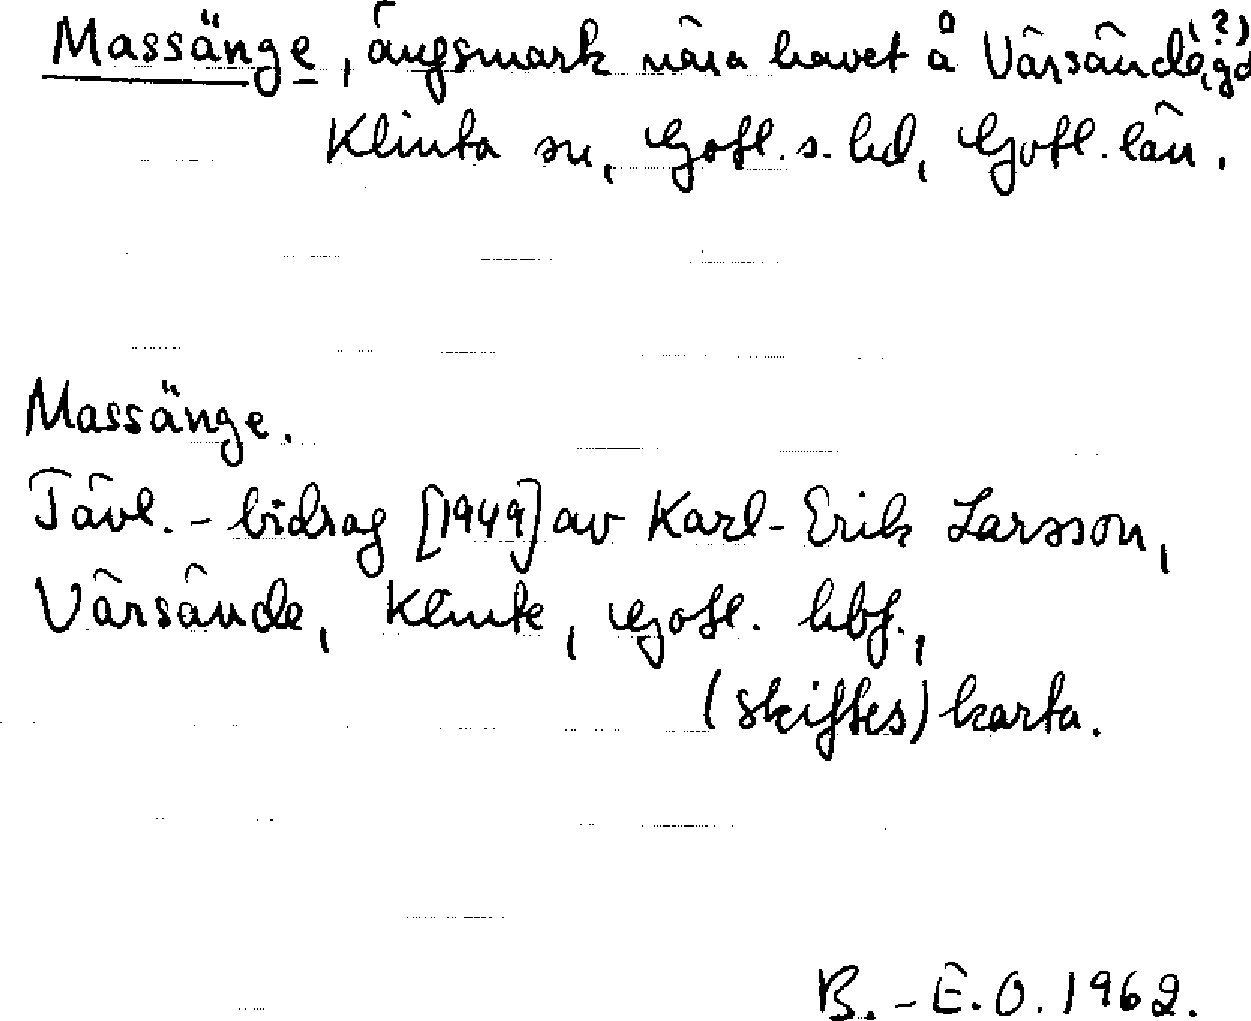 Massänge, ängsmark nära havet å Värsände, (?) gd
Klinta sn, Gotl. s. hd, Gotl. län.
Massänge.
Tävl.-bidrag [1949] av Karl-Erik Larsson,
Värsände, Klinte, Gotl. hbf.,
(skiftes)karta.
B.-E.O. 1962.